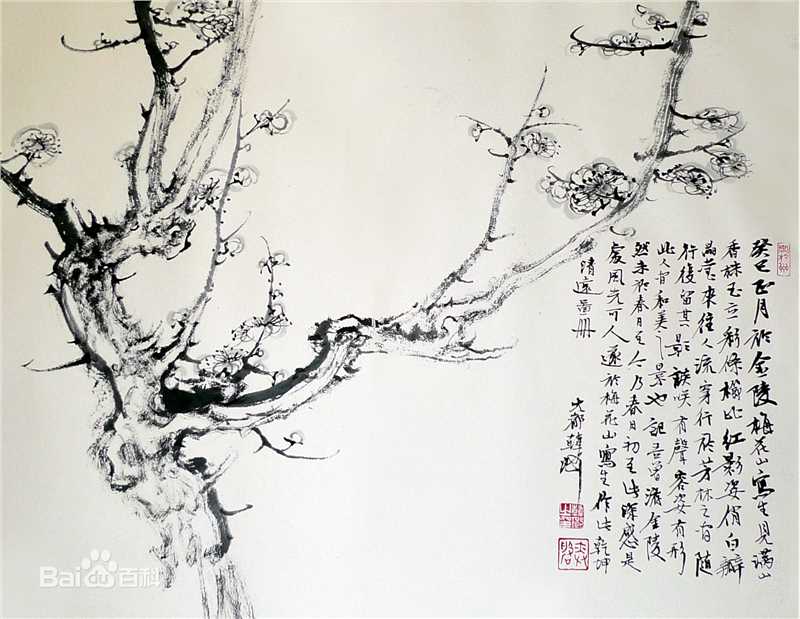 癸巳正月於金陵梅花山寫生見满山
香株玉立彩條櫛比紅影姿俏白瓣
晶莹來往人流穿行於芳林之間随
行後留其影談笑有聲容姿有形
此人間和美之景也記吾曾游金陵
然未於春日至今乃春日初至此深感是
處風光可人遂於梅花山寫生作此乾坤
清遠畫册
大都韓
Bai百科